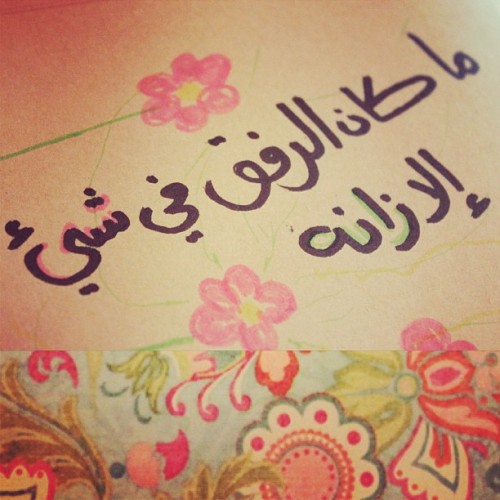 ما كان الرفق في شيئ
إلا زانه